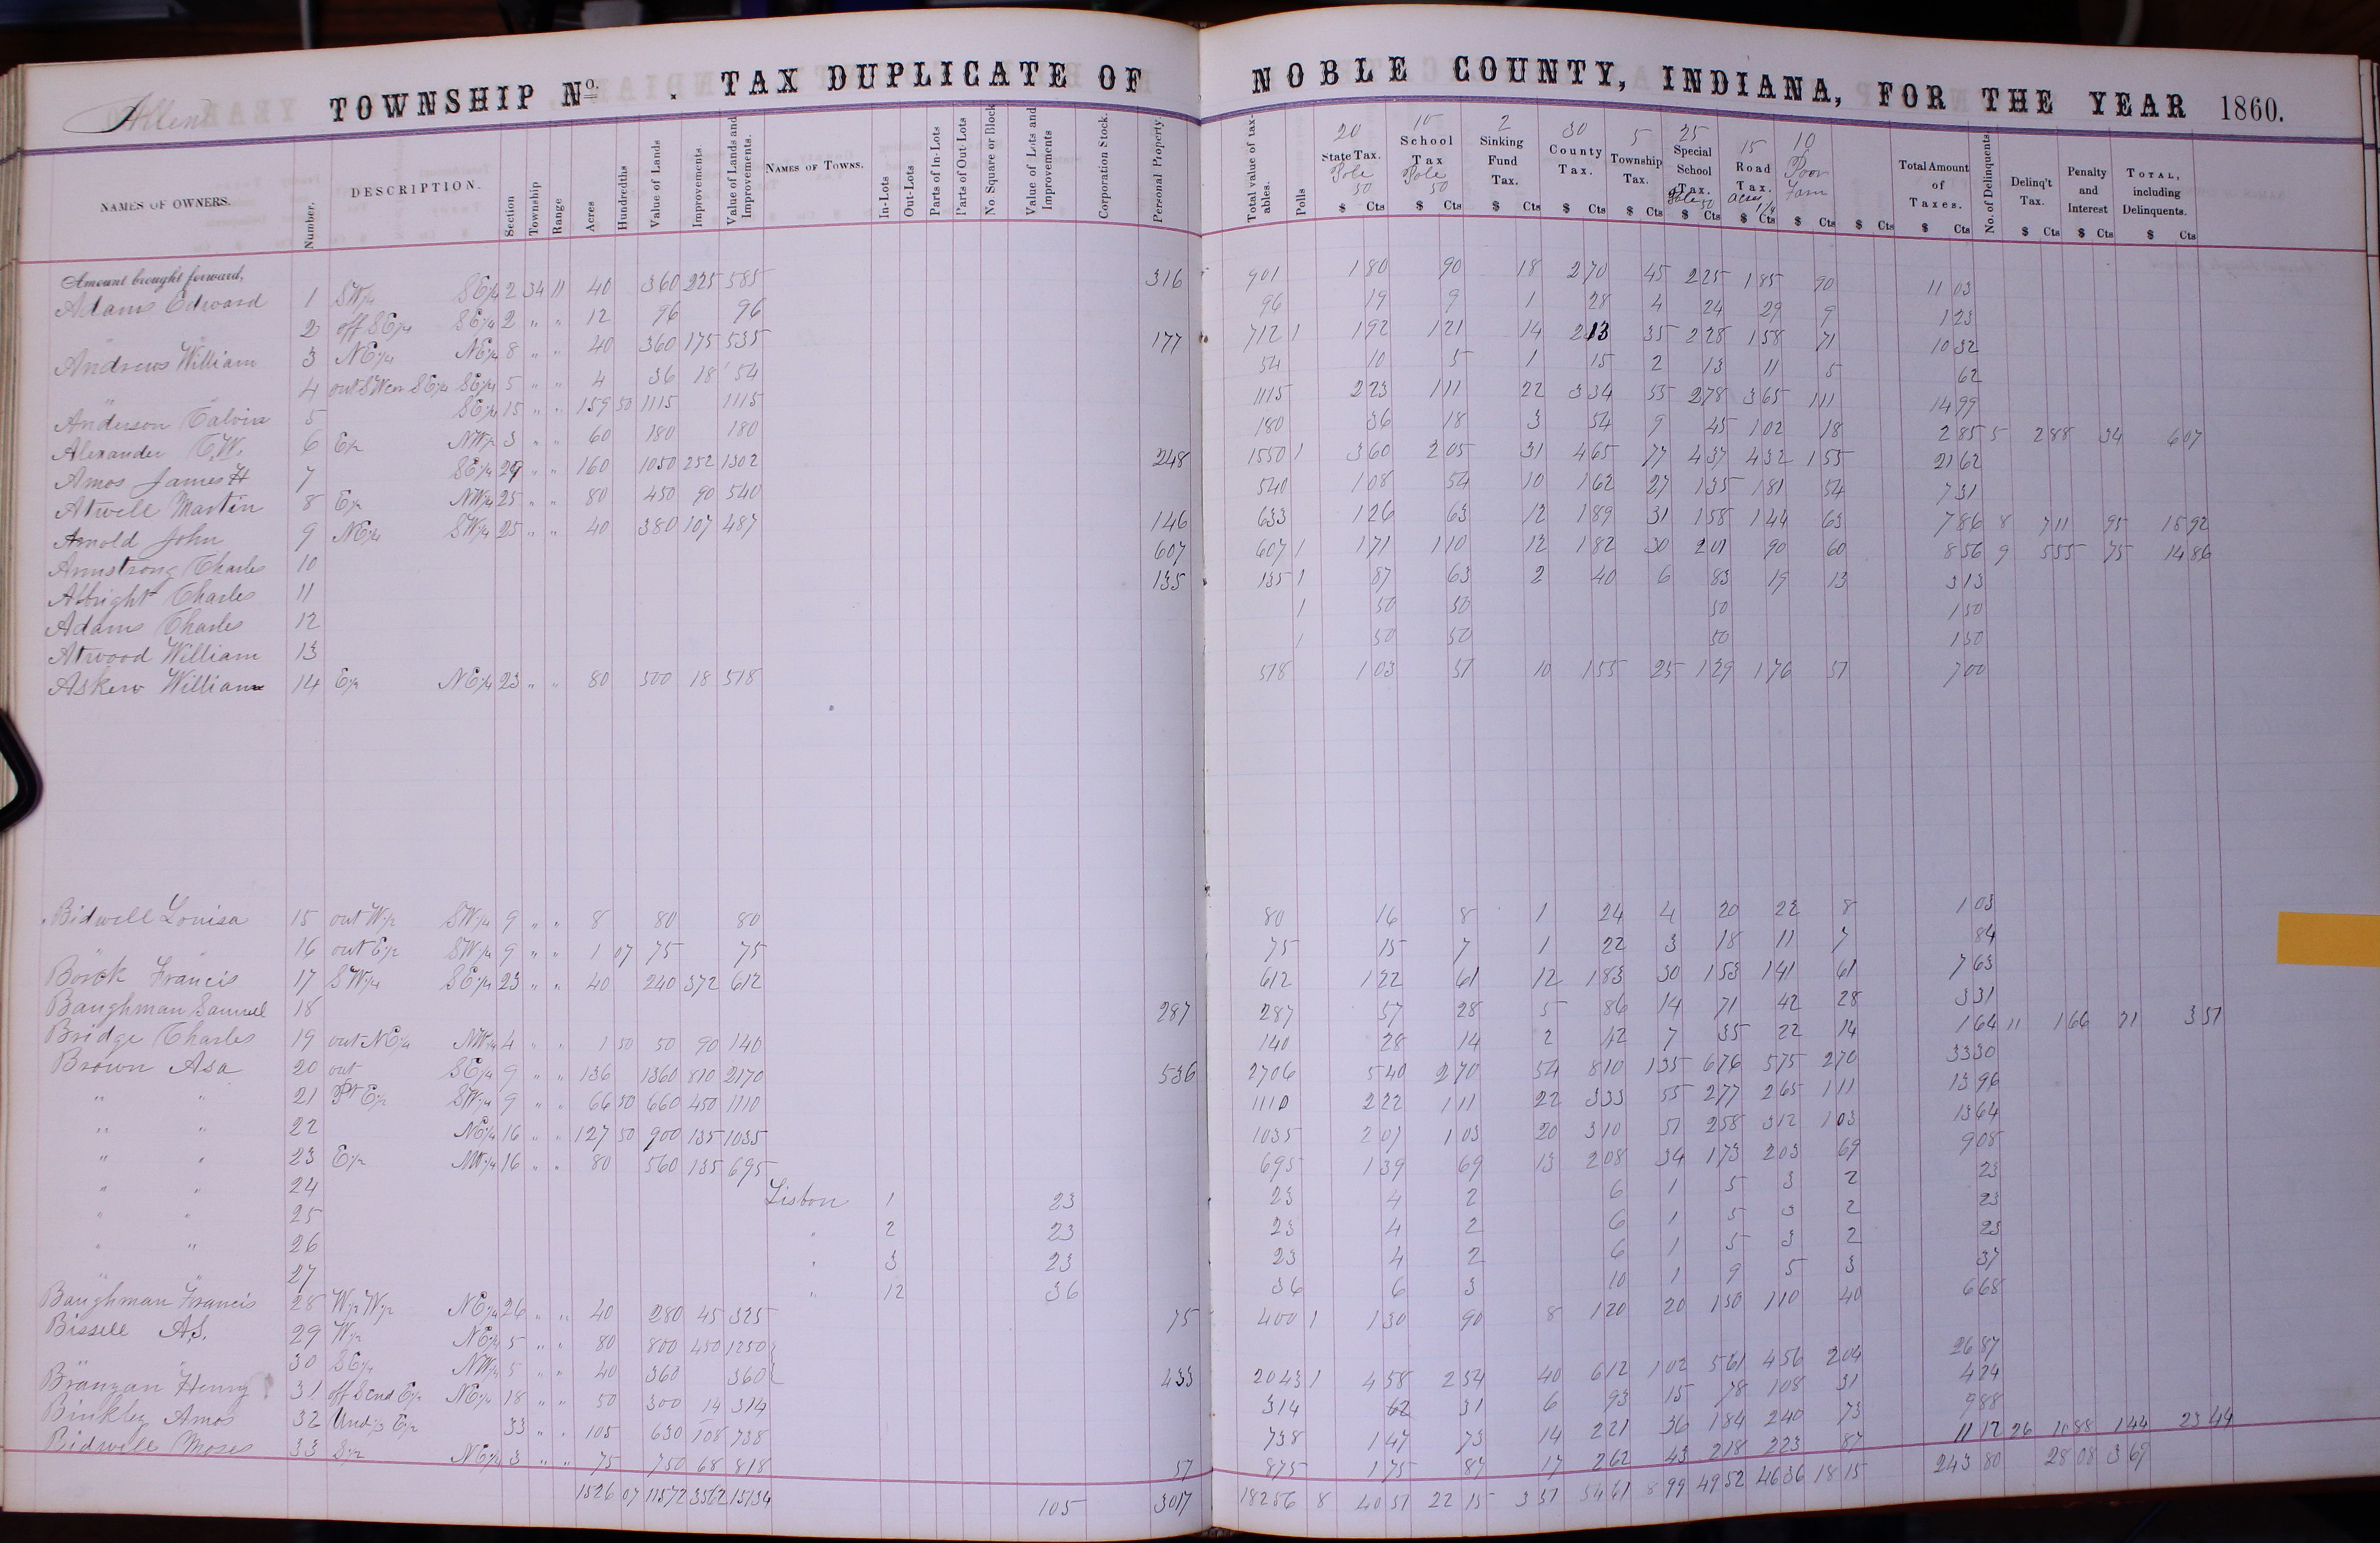 Allen TOWNSHIP No. . TAX DUPLICATE OF NOBLE COUNTY, INDIANA, FOR THE YEAR 1860.
NAMES OF OWNERS. Number. DESCRIPTION. Section Township Range Acres Hundredths Value of Lands Improvements Value of Lands and Improvements. NAMES OF TOWNS. In-Lots Out-Lots Parts of In-Lots Parts of Out-Lots No. Square or Block Value of Lots and Improvements Corporation Stock. Personal Property. Total value of taxables. Polls 20 State Tax. Pole 50 $ Cts 10 School Tax Pole 50 $ Cts 2 Sinking Fund Tax. $ Cts 30 County Tax. $ Cts 5 Township Tax. $ Cts 25 Special School Tax. Pole 50 $ Cts 15 Road Tax. acre $ Cts 10 Poor Farm $ Cts $ Cts Total Amount of Taxes. $ Cts No. of Delinquents Delinq't Tax. $ Cts Penalty and Interest $ Cts TOTAL, including Delinquents. $ Cts
Amount brought forward,
Adams Edward 1 SW¼ SE¼ 2 34 11 40 360 225 585 316 901 1 80 90 18 2 70 45 2 25 1 85 90 11 03
" " 2 off SE¼ SE¼ 2 " " 12 96 96 96 19 9 1 28 4 24 29 9 1 23
Andrews William 3 NE¼ NE¼ 8 " " 40 360 175 535 177 712 1 1 92 1 21 14 2 13 35 2 28 1 58 71 10 32
" " 4 out SW cor SE¼ SE¼ 5 " " 4 36 18 54 54 10 5 1 15 2 13 11 5 62
Anderson Calvin 5 SE¼ 15 " " 159 50 1115 1115 1115 2 23 1 11 22 3 34 55 2 78 3 65 1 11 14 99
Alexander C.W. 6 E½ NW¼ 3 " " 60 180 180 180 36 18 3 54 9 45 1 02 18 2 85 5 2 88 34 6 07
Amos James H 7 SE¼ 29 " " 160 1050 252 1302 248 1550 1 3 60 2 05 31 4 65 77 4 37 4 32 1 55 21 62
Atwell Martin 8 E½ NW¼ 25 " " 80 450 90 540 540 1 08 54 10 1 62 27 1 35 1 81 54 7 31
Arnold John 9 NE¼ SW¼ 25 " " 40 380 107 487 146 633 1 26 63 12 1 89 31 1 58 1 44 63 7 86 8 7 11 95 15 92
Armstrong Charles 10 607 607 1 1 71 1 10 12 1 82 30 2 01 90 60 8 56 9 5 55 75 14 86
Albright Charles 11 135 135 1 87 63 2 40 6 83 19 13 3 13
Adams Charles 12 1 50 50 50 1 50
Atwood William 13 1 50 50 50 1 50
Askew William 14 E½ NE¼ 23 " " 80 500 18 518 518 1 03 51 10 1 55 25 1 29 1 76 51 7 00
Bidwell Louisa 15 out W½ SW¼ 9 " " 8 80 80 80 16 8 1 24 4 20 22 8 1 03
" " 16 out E½ SW¼ 9 " " 1 07 75 75 75 15 7 1 22 3 18 11 7 84
Borck Francis 17 SW¼ SE¼ 23 " " 40 240 372 612 612 1 22 61 12 1 83 30 1 53 1 41 61 7 63
Baughman Samuel 18 287 287 57 28 5 86 14 71 42 28 3 31
Bridge Charles 19 out NE¼ NW¼ 4 " " 1 50 50 90 140 140 28 14 2 42 7 35 22 14 1 64 11 1 66 21 3 51
Brown Asa 20 out SE¼ 9 " " 136 1360 810 2170 536 2706 5 40 2 70 54 8 10 1 35 6 76 5 75 2 70 33 30
" " 21 Pt E½ SW¼ 9 " " 66 50 660 450 1110 1110 2 22 1 11 22 3 33 55 2 77 2 65 1 11 13 96
" " 22 NE¼ 16 " " 127 50 900 135 1035 1035 2 07 1 03 20 3 10 51 2 58 3 12 1 03 13 64
" " 23 E½ NW¼ 16 " " 80 560 135 695 695 1 39 69 13 2 08 34 1 73 2 03 69 9 08
" " 24 Lisbon 1 23 23 4 2 6 1 5 3 2 23
" " 25 " 2 23 23 4 2 6 1 5 3 2 23
" " 26 " 3 23 23 4 2 6 1 5 3 2 23
" " 27 " 12 36 36 6 3 10 1 9 5 3 37
Baughman Francis 28 W½ W½ NE¼ 26 " " 40 280 45 325 75 400 1 1 30 90 8 1 20 20 1 50 1 10 40 6 68
Bissell A.S. 29 W½ NE¼ 5 " " 80 800 450 1250
" " 30 SE¼ NW¼ 5 " " 40 360 360 433 2043 1 4 58 2 54 40 6 12 1 02 5 61 4 56 2 04 26 87
Branyan Henry 31 off S end E½ NE¼ 18 " " 50 300 14 314 314 62 31 6 93 15 78 1 08 31 4 24
Binkley Amos 32 Und⅓ E½ 33 " " 105 630 108 738 738 1 47 73 14 2 21 36 1 84 2 40 73 9 88
Bidwell Moses 33 S½ NE¼ 3 " " 75 750 68 818 57 875 1 75 87 17 2 62 43 2 18 2 23 87 11 12 26 10 88 1 44 23 44
1526 07 11572 3562 15134 105 3017 18256 8 40 51 22 15 3 51 54 61 8 99 49 52 46 36 18 15 243 80 28 08 3 69